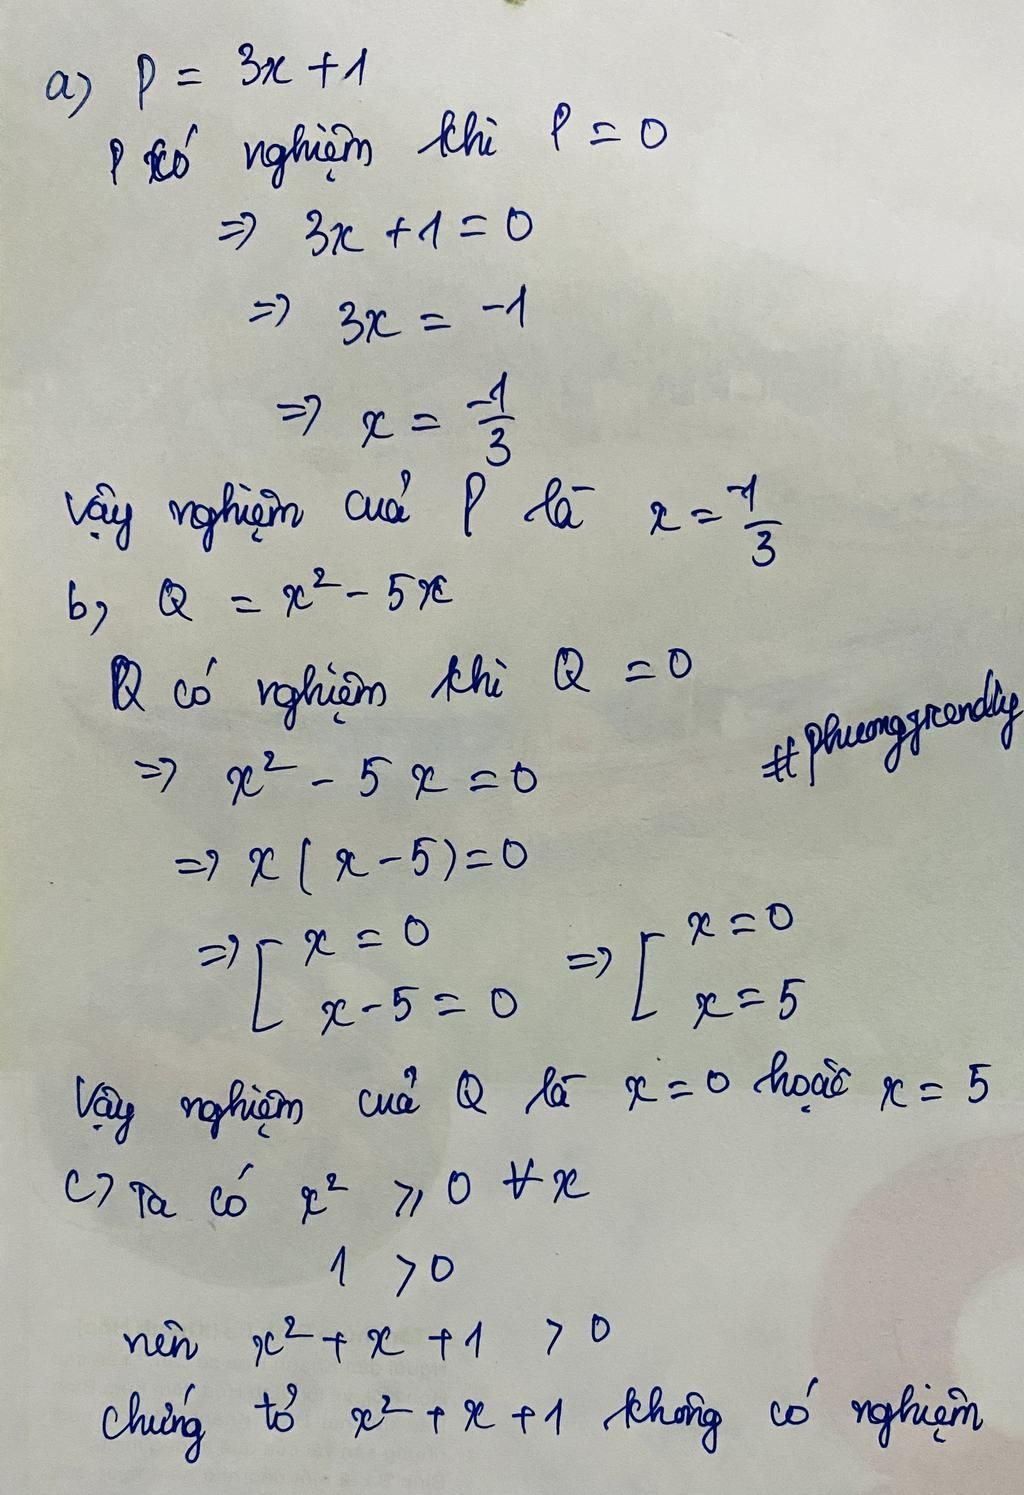 a) P = 3x + 1
P có nghiệm khi P = 0
=> 3x + 1 = 0
=> 3x = -1
=> x = -1/3
Vậy nghiệm cuả P là x = -1/3
b) Q = x² - 5x
Q có nghiệm khi Q = 0
#phuonggrendly
=> x² - 5x = 0
=> x(x - 5) = 0
=> [ x = 0 => [ x = 0
x - 5 = 0 x = 5
Vậy nghiệm cuả Q là x = 0 hoặc x = 5
c) Ta có x² ⩾ 0 ∀ x
1 > 0
nên x² + x + 1 > 0
chứng tỏ x² + x + 1 không có nghiệm